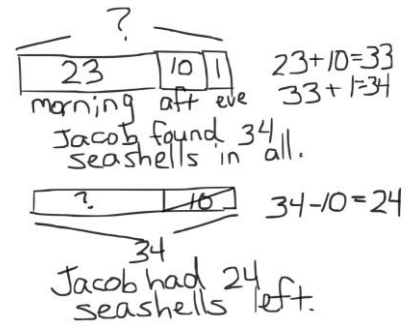 ?
23 10 1
morning aft eve
23+10=33
33+1=34
Jacob found 34
seashells in all.
? 10
34
34-10=24
Jacob had 24
seashells left.